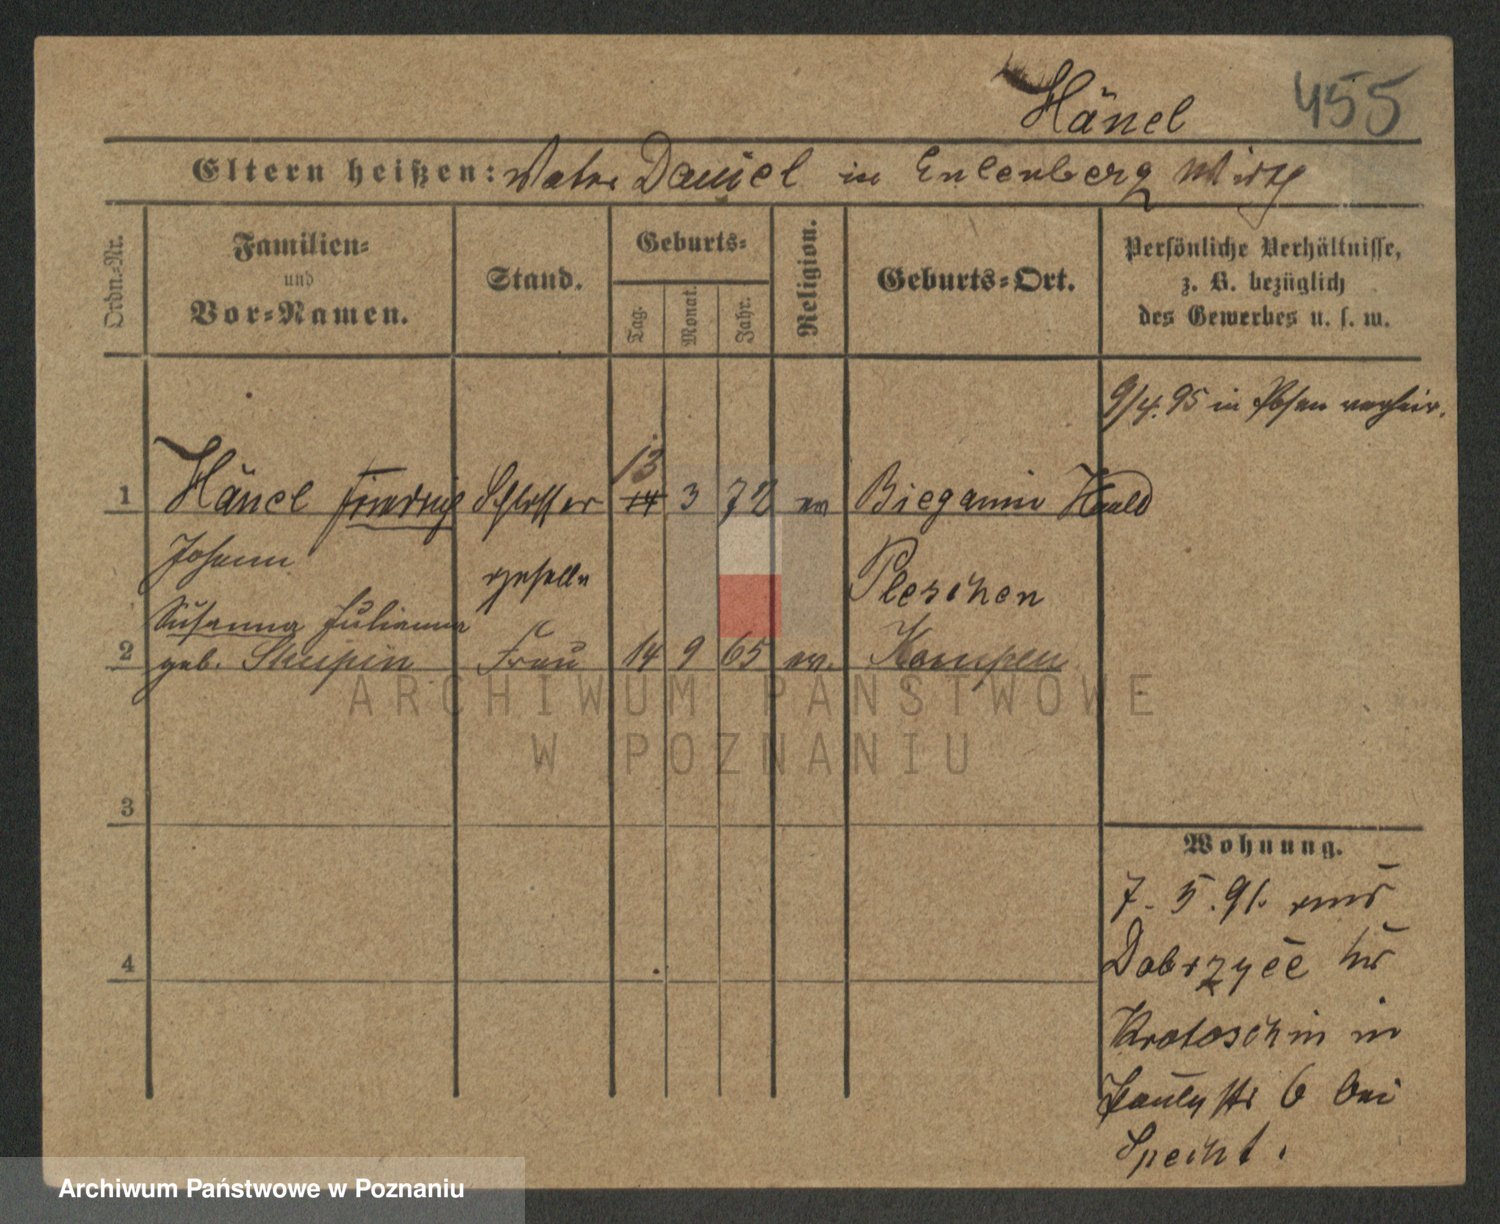 Hänel 455
Eltern heißen: Vater Daniel in Eulenberg Wirth
Ordn.-Nr.
Familien-
und
Vor-Namen.
Stand.
Geburts-
Tag.
Monat.
Jahr.
Religion.
Geburts-Ort.
Persönliche Verhältnisse,
z. B. bezüglich
des Gewerbes u. s. w.
9/4.95 in Posen verheir.
13
1 Hänel Friedrich Schlosser 14 3 72 ev Bieganin
Johann geselle Pleschen
Susanna Julianna
2 geb. Skupin Frau 14 9 65 ev. Kempen
ARCHIWUM PAŃSTWOWE
W POZNANIU
3
4
Wohnung.
7. 5. 91. aus
Dobrzyce Kr
Krotoschin in
6 bei
Specht.
Archiwum Państwowe w Poznaniu